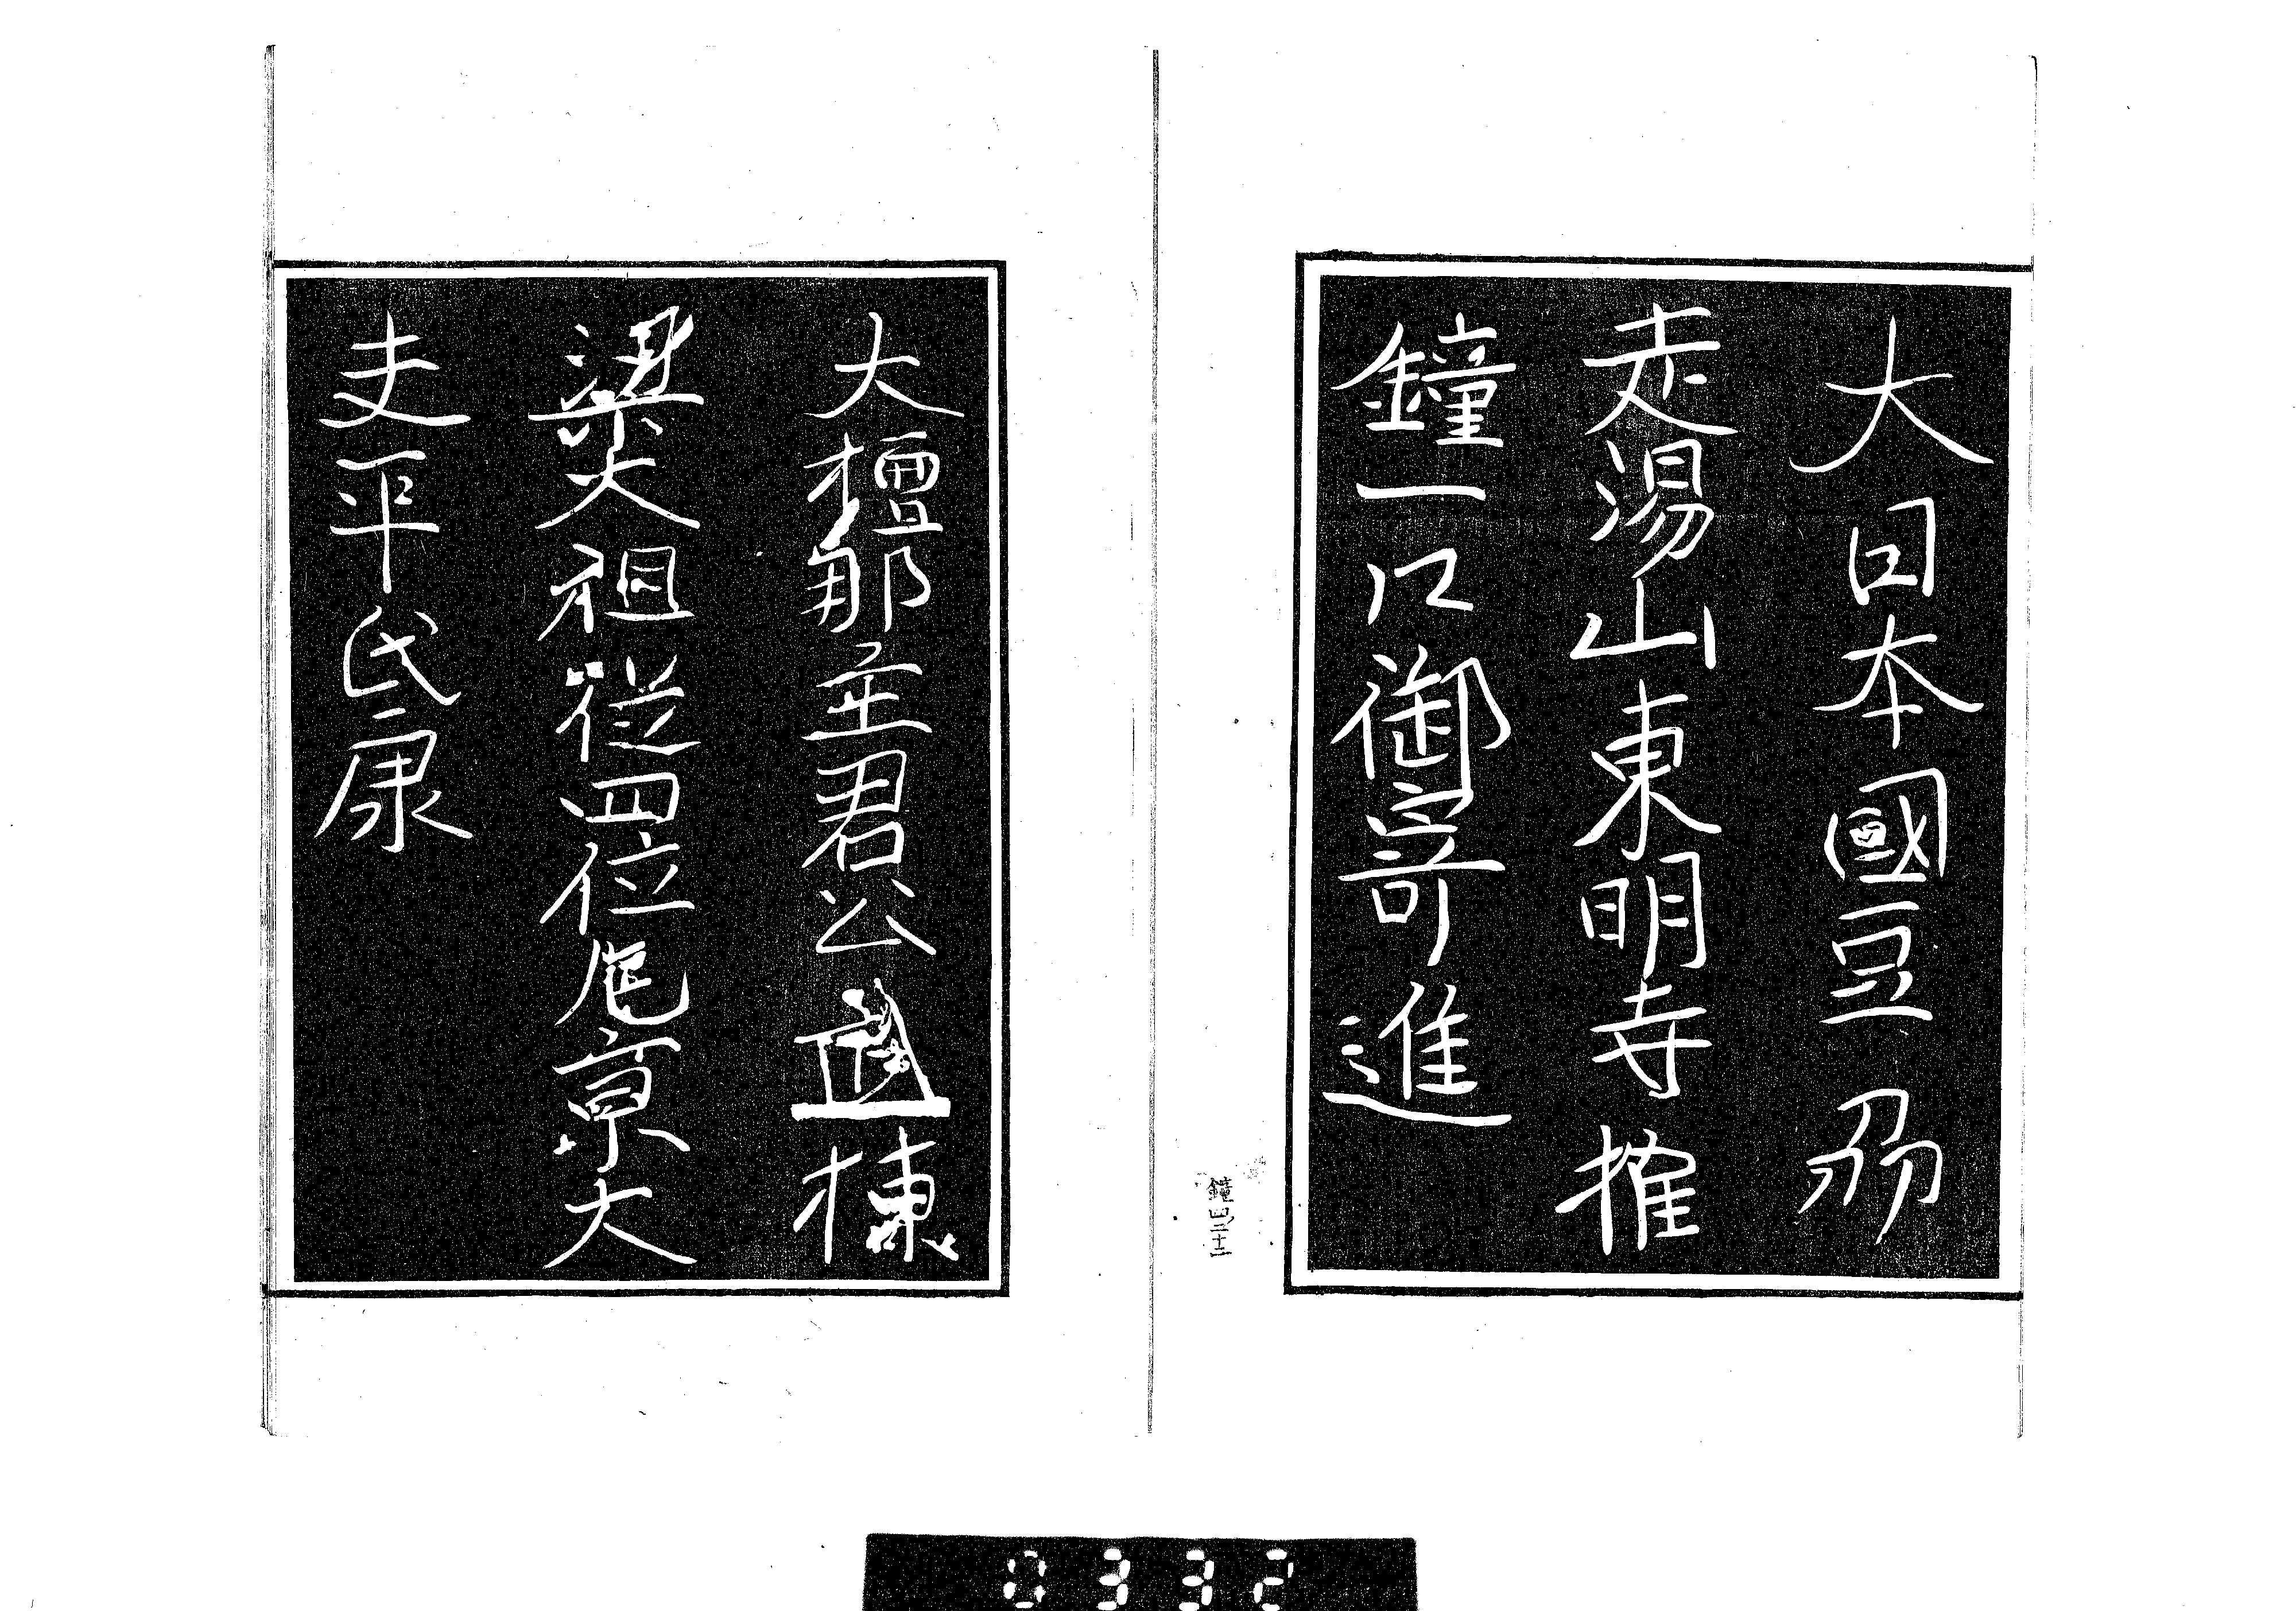 大日本國豆刕
走湯山東明寺推
鐘一口御寄進
大檀那主君公武棟
梁大祖從四位左京大
夫平氏康
鐘四 三十二
0332